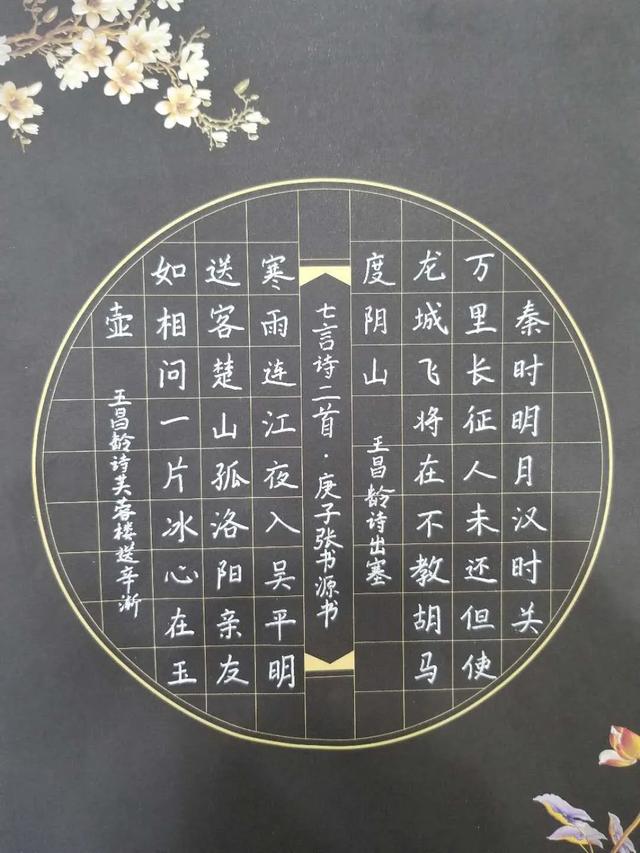 秦时明月汉时关
万里长征人未还但使
龙城飞将在不教胡马
度阴山
王昌龄诗出塞
七言诗二首·庚子张书源书
寒雨连江夜入吴平明
送客楚山孤洛阳亲友
如相问一片冰心在玉
壶
王昌龄诗芙蓉楼送辛渐